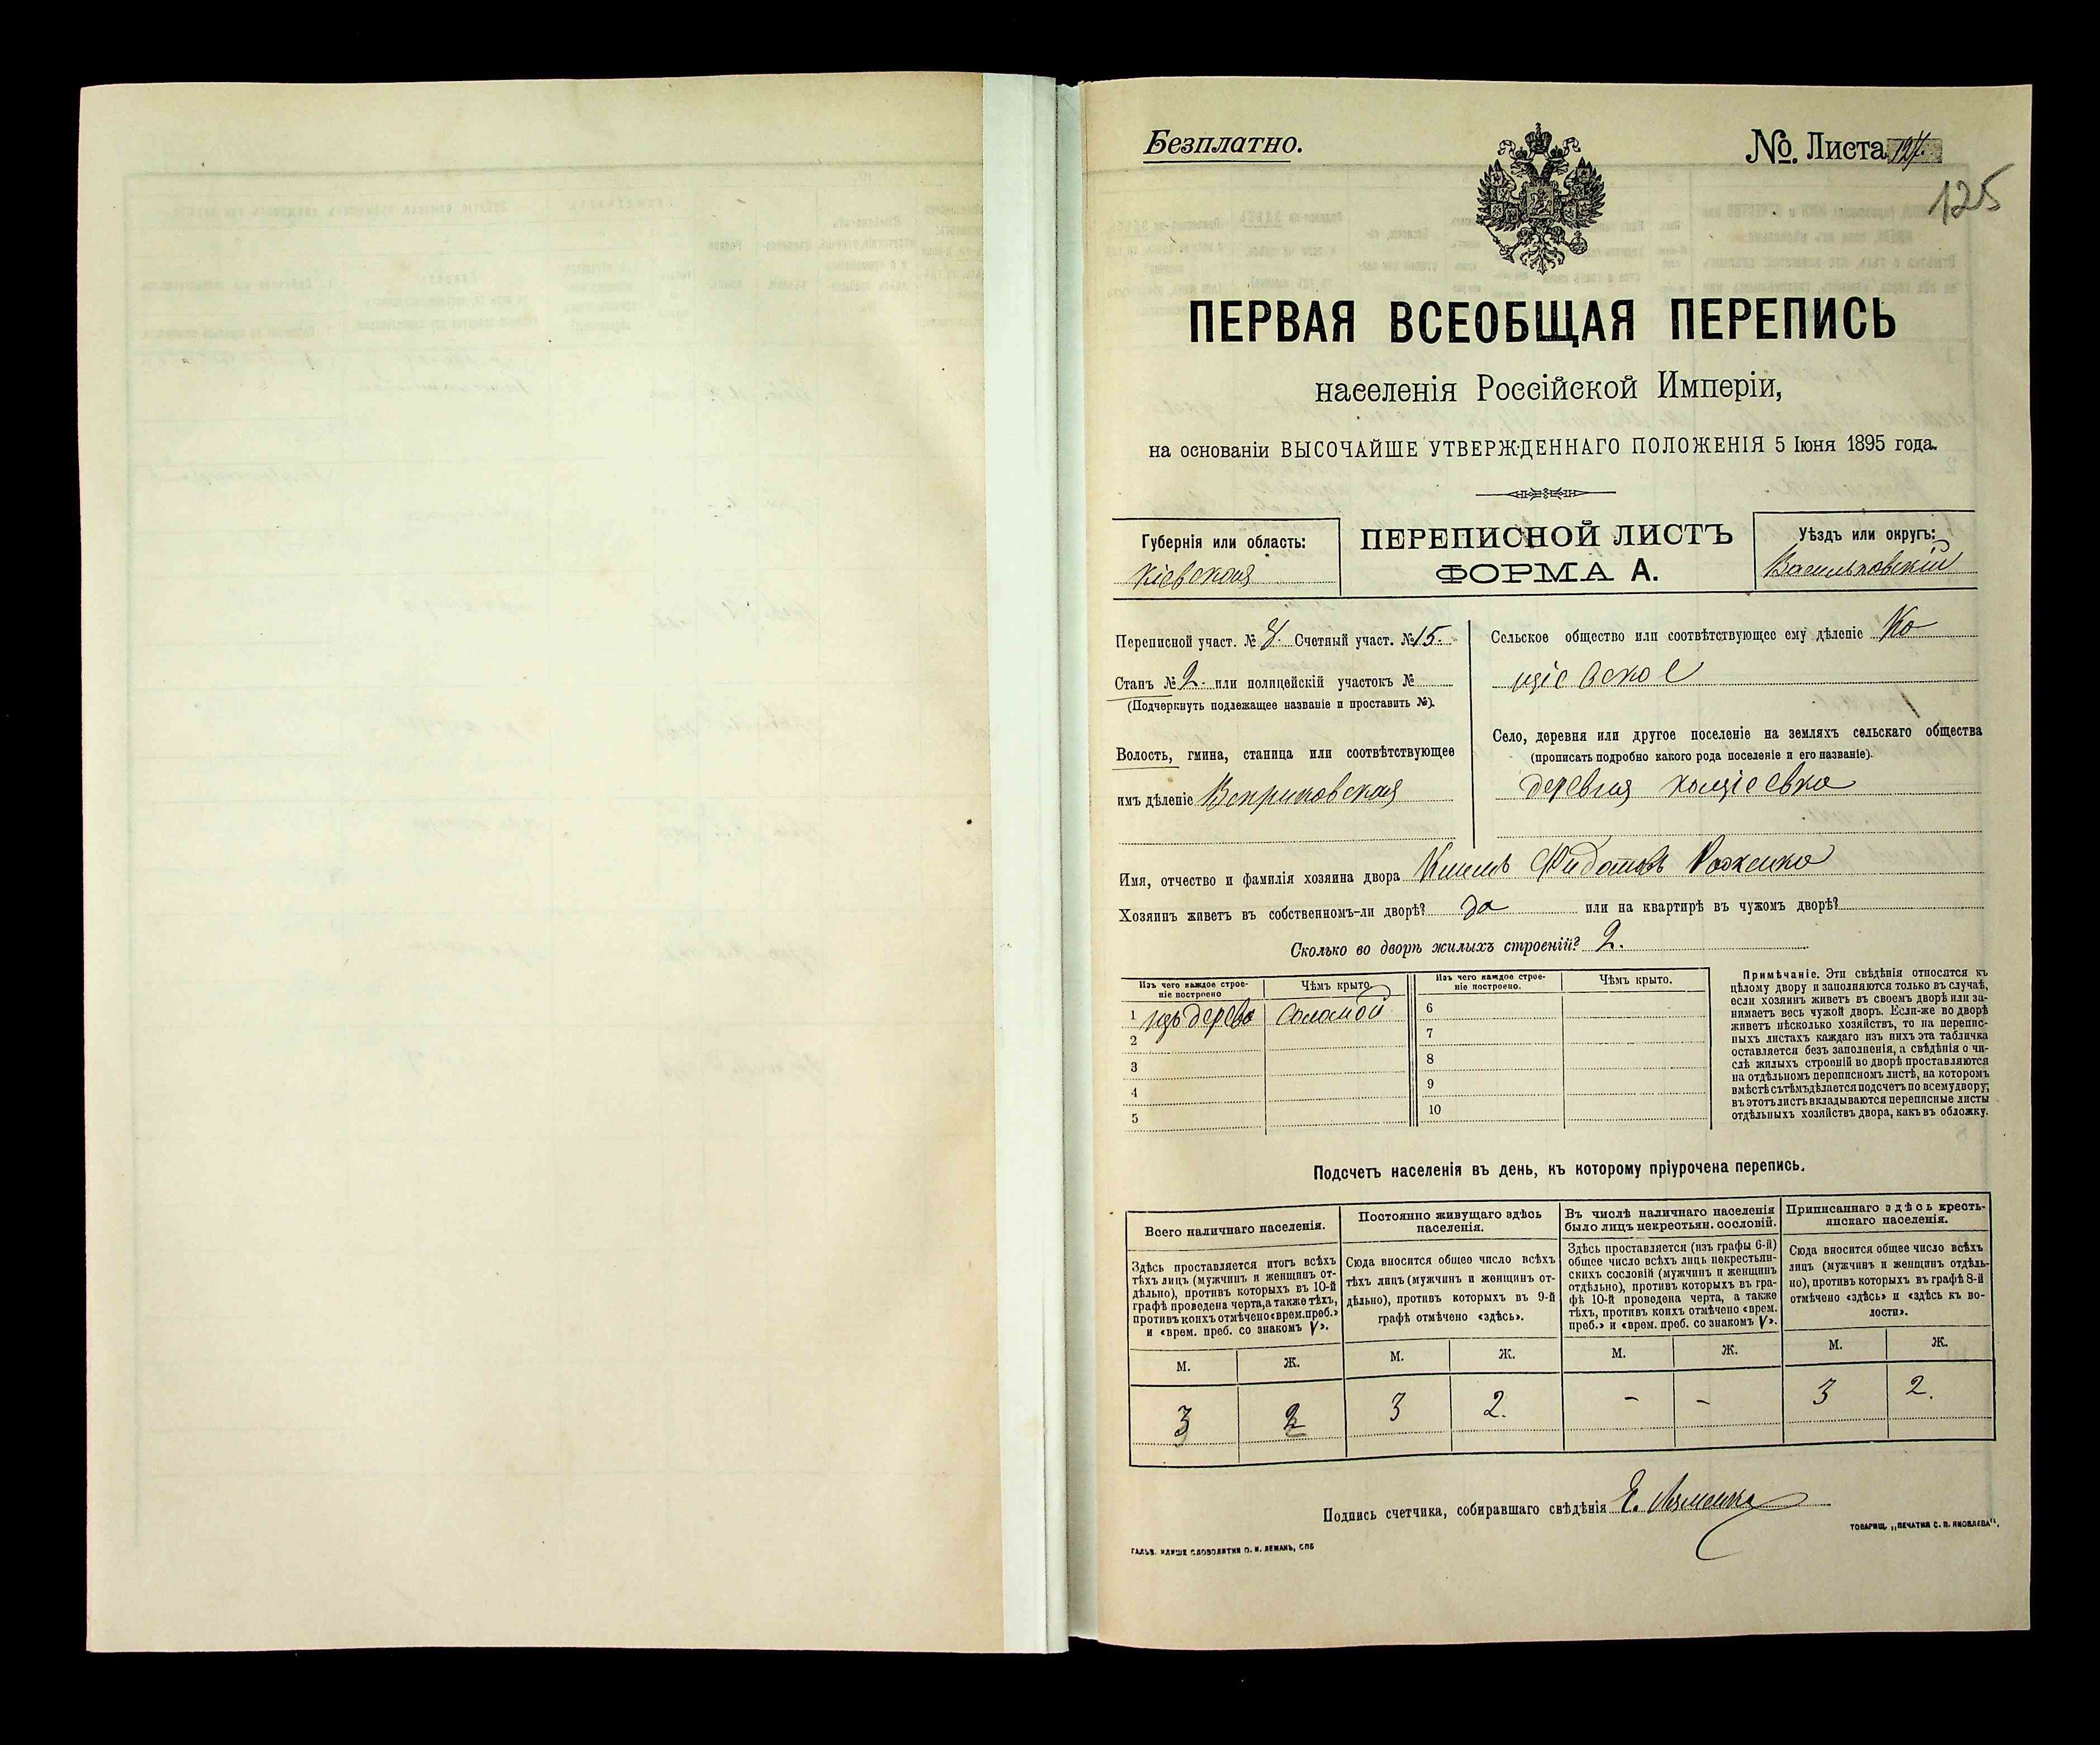 Безплатно.
№. Листа
125
ПЕРВАЯ ВСЕОБЩАЯ ПЕРЕПИСЬ
населенія Россійской Имперіи,
на основаніи ВЫСОЧАЙШЕ УТВЕРЖДЕННАГО ПОЛОЖЕНІЯ 5 Іюня 1895 года.
Губернія или область:
Кіевская
ПЕРЕПИСНОЙ ЛИСТЪ
ФОРМА А.
Уѣздъ или округъ:
Васильковскій
Переписной участ. № Счетный участ. № 15.
Станъ № 2. или полицейскій участокъ №
(Подчеркнуть подлежащее названіе и проставить №).
Волость, гмина, станица или соотвѣтствующее
имъ дѣленіе
Сельское общество или соотвѣтствующее ему дѣленіе Ко
щіевское
Село, деревня или другое поселеніе на земляхъ сельскаго общества
(прописать подробно какого рода поселеніе и его названіе).
деревня Кощіевка
Имя, отчество и фамилія хозяина двора
Хозяинъ живетъ въ собственномъ-ли дворѣ? да или на квартирѣ въ чужомъ дворѣ?
Сколько во дворѣ жилыхъ строеній? 2.
Изъ чего каждое строе-
ніе построено
Чѣмъ крыто
1 изъ дерева соломой
2
3
4
5
Изъ чего каждое строе-
ніе построено.
Чѣмъ крыто.
6
7
8
9
10
Примѣчаніе. Эти свѣдѣнія относятся къ
цѣлому двору и заполняются только въ случаѣ,
если хозяинъ живетъ въ своемъ дворѣ или за-
нимаетъ весь чужой дворъ. Если-же во дворѣ
живетъ нѣсколько хозяйствъ, то на перепис-
ныхъ листахъ каждаго изъ нихъ эта табличка
оставляется безъ заполненія, а свѣдѣнія о чи-
слѣ жилыхъ строеній во дворѣ проставляются
на отдѣльномъ переписномъ листѣ, на которомъ
вмѣстѣ съ тѣмъ дѣлается подсчетъ по всему двору;
въ этотъ листъ вкладываются переписные листы
отдѣльныхъ хозяйствъ двора, какъ въ обложку.
Подсчетъ населенія въ день, къ которому пріурочена перепись.
Всего наличнаго населенія.
Здѣсь проставляется итогъ всѣхъ
тѣхъ лицъ (мужчинъ и женщинъ от-
дѣльно), противъ которыхъ въ 10-й
графѣ проведена черта, а также тѣхъ,
противъ коихъ отмѣчено «врем. преб.»
и «врем. преб. со знакомъ V».
М. Ж.
3 2
Постоянно живущаго здѣсь
населенія.
Сюда вносится общее число всѣхъ
тѣхъ лицъ (мужчинъ и женщинъ от-
дѣльно), противъ которыхъ въ 9-й
графѣ отмѣчено «здѣсь».
М. Ж.
3 2.
Въ числѣ наличнаго населенія
было лицъ некрестьян. сословій.
Здѣсь проставляется (изъ графы 6-й)
общее число всѣхъ лицъ некрестьян-
скихъ сословій (мужчинъ и женщинъ
отдѣльно), противъ которыхъ въ гра-
фѣ 10-й проведена черта, а также
тѣхъ, противъ коихъ отмѣчено «врем.
преб.» и «врем. преб. со знакомъ V».
М. Ж.
– –
Приписаннаго здѣсь кресть-
янскаго населенія.
Сюда вносится общее число всѣхъ
лицъ (мужчинъ и женщинъ отдѣль-
но), противъ которыхъ въ графѣ 8-й
отмѣчено «здѣсь» и «здѣсь къ во-
лости».
М. Ж.
3 2.
Подпись счетчика, собиравшаго свѣдѣнія Е.
ГАЛЬВ. КЛИШЕ СЛОВОЛИТНИ О. И. ЛЕМАНЪ, СПБ
ТОВАРИЩ. „ПЕЧАТНЯ С. П. ЯКОВЛЕВА".